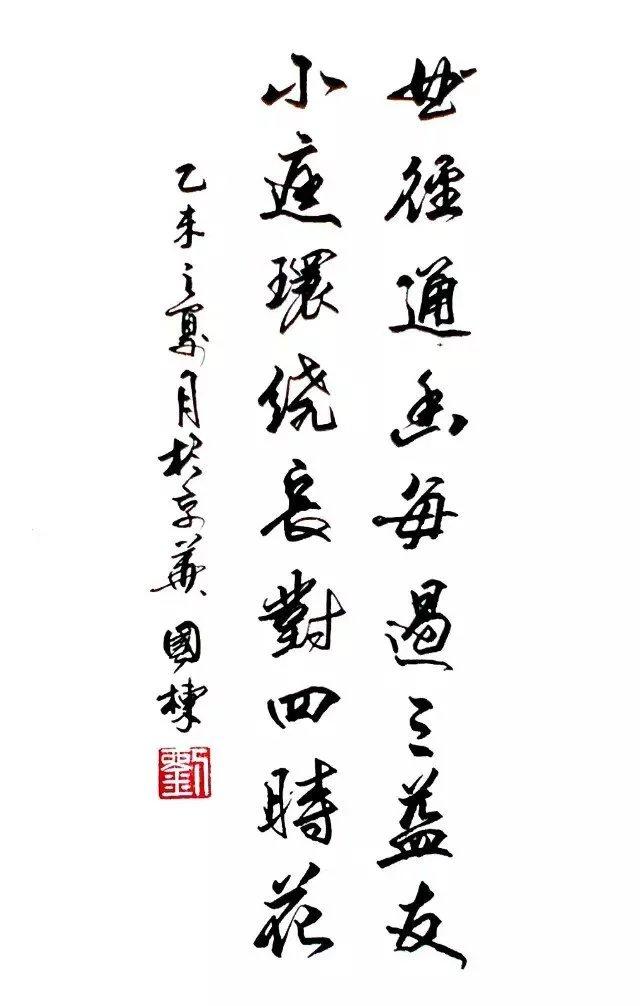 曲徑通幽每過三益友
小庭環绕長對四時花
乙未之夏月於京華 國棟
劉